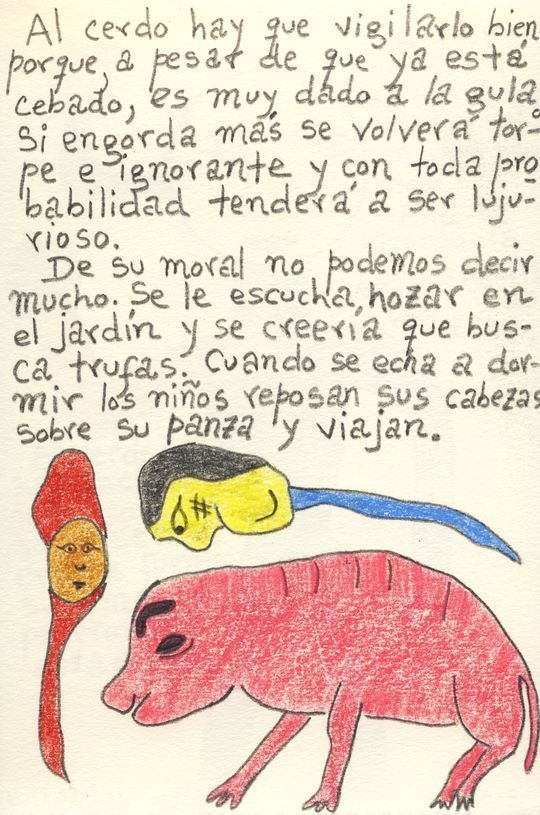 Al cerdo hay que vigilarlo bien
porque, a pesar de que ya está
cebado, es muy dado a la gula.
Si engorda más se volverá tor-
pe e ignorante y con toda pro
babilidad tenderá a ser luju-
rioso.
De su moral no podemos decir
mucho. Se le escucha hozar en
el jardín y se creería que bus-
ca trufas. Cuando se echa a dor-
mir los niños reposan sus cabezas
sobre su panza y viajan.